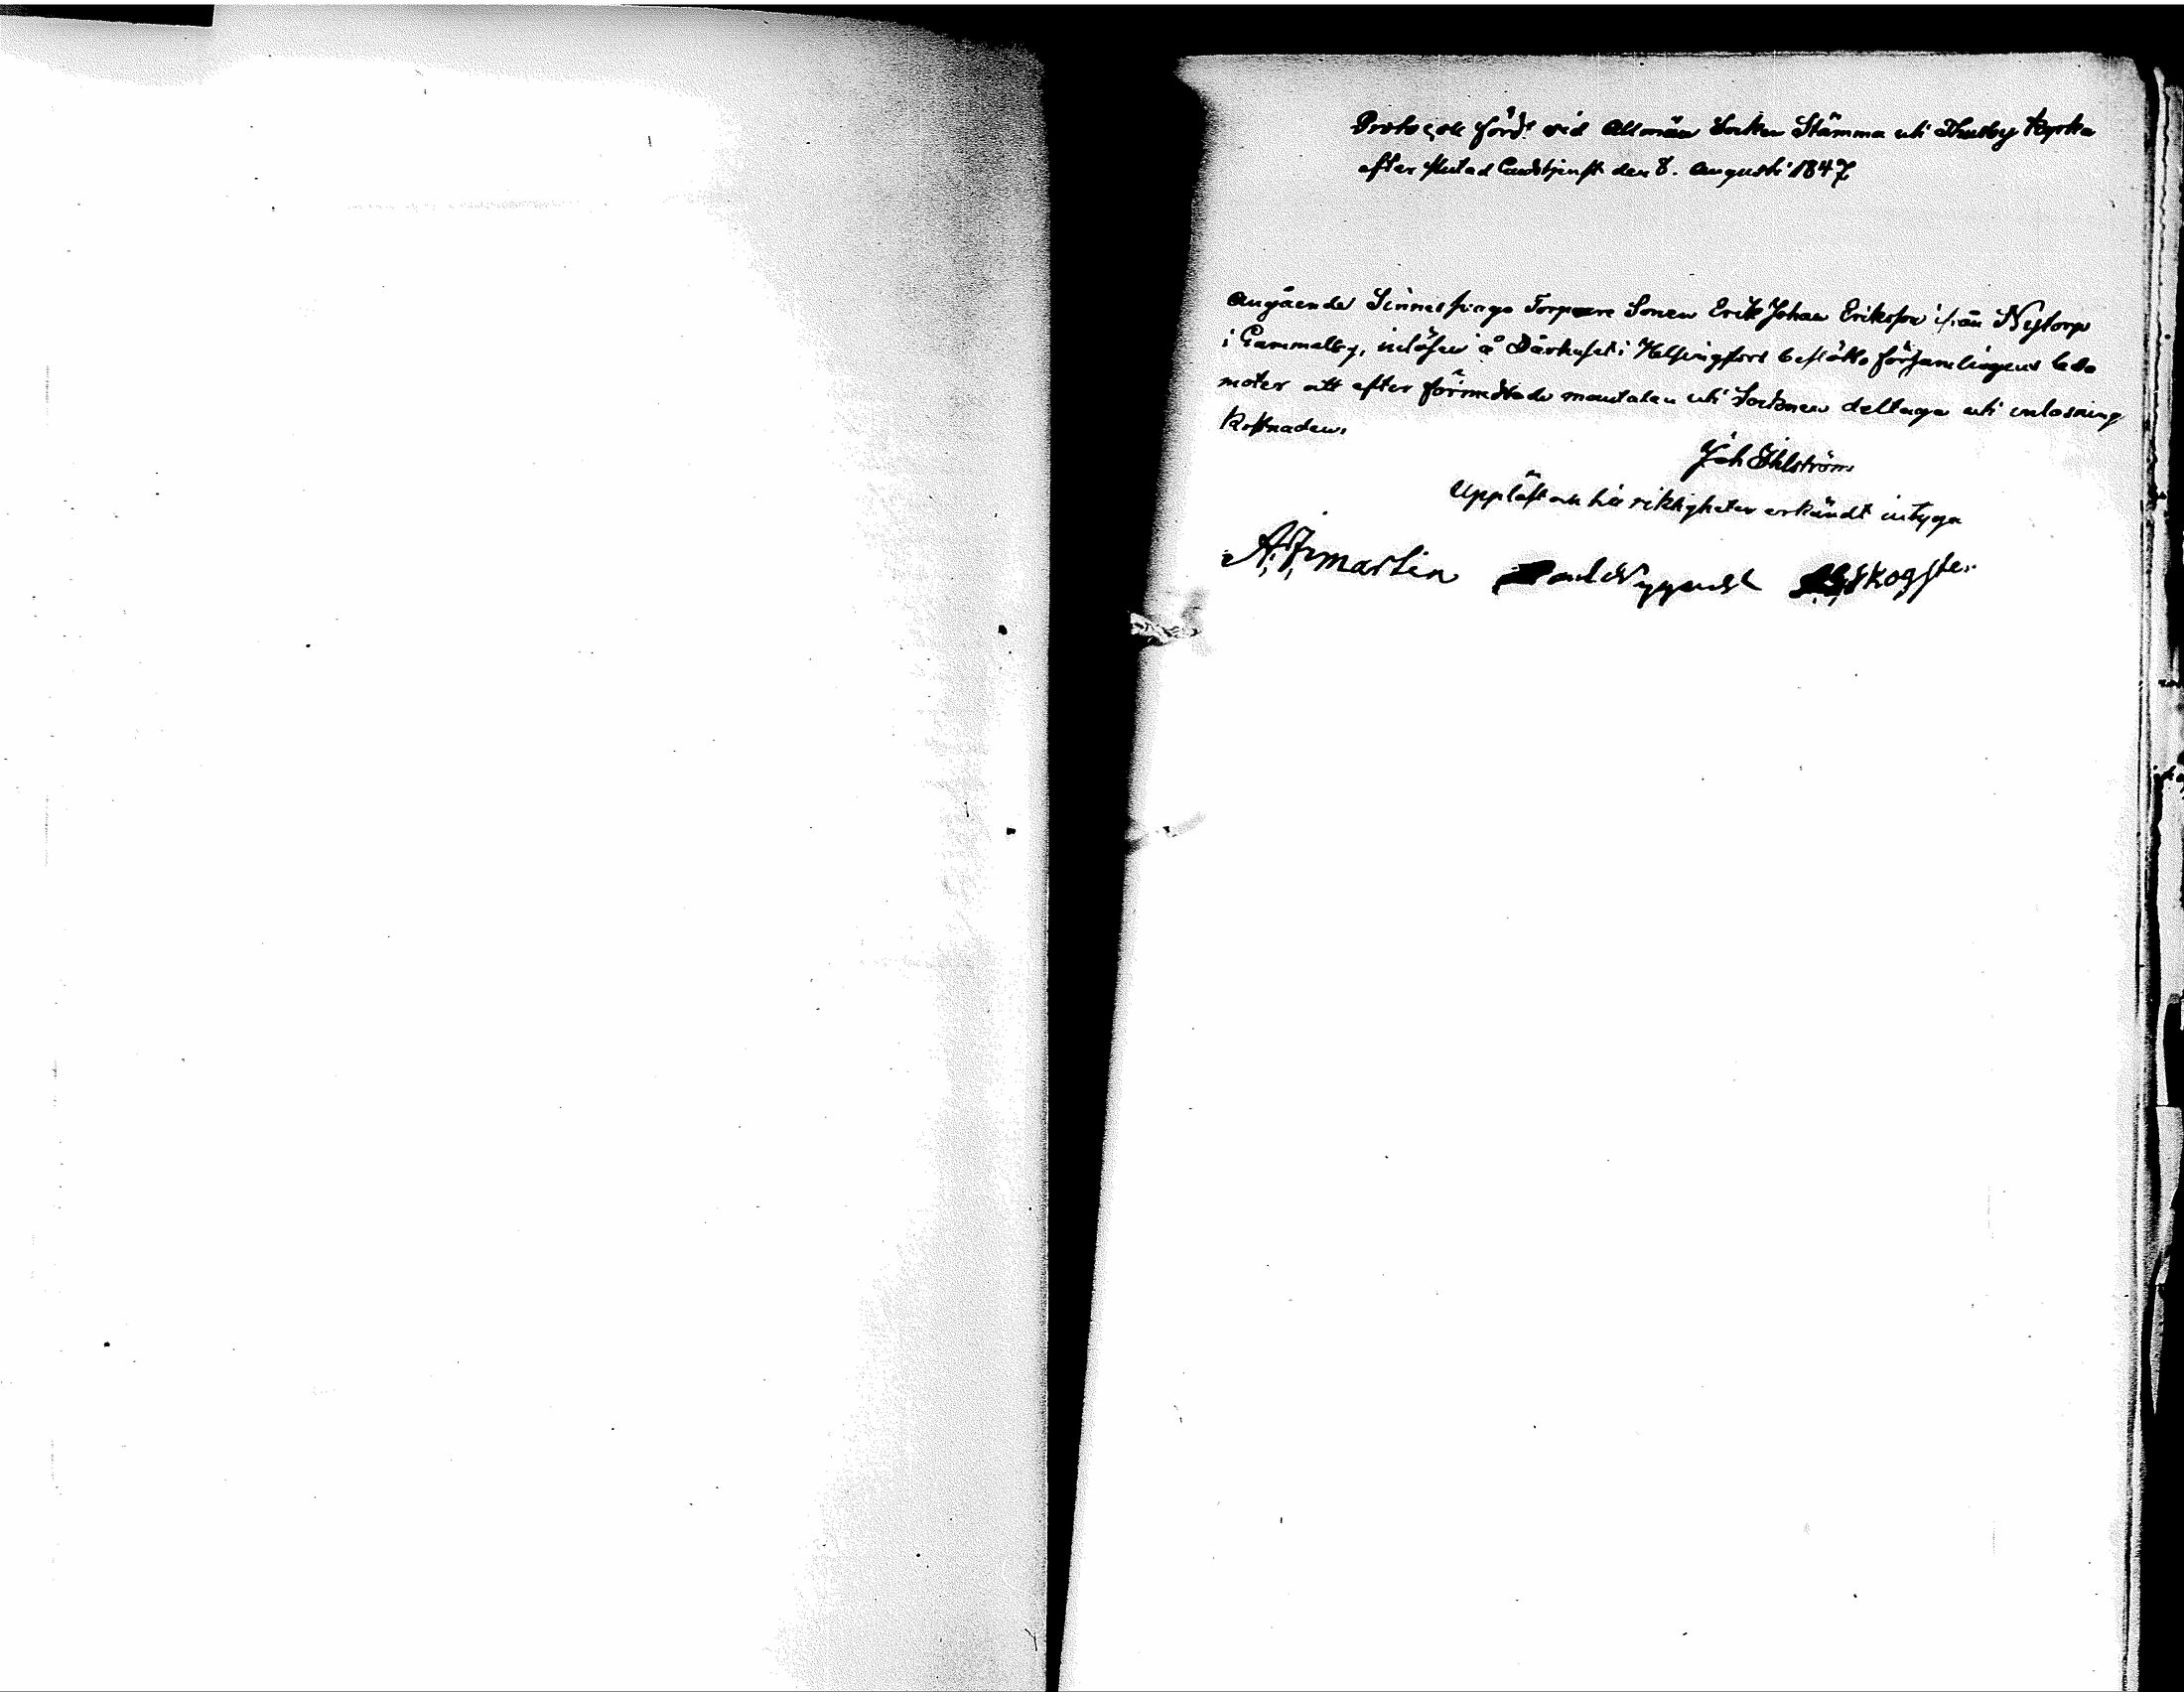 Protocoll förd! vid Allmän Socken Stämma uti Thusby Kyrka
efter slutad Gudstjenst den 8. Augusti 1847
Angående Sinnessvaga Torpare Sonen Erik Johan Eriksson ifrån Nystorp
i Gammelby, inlösen å Dårhuset i Helsingfors beslöto församlingens leda
moter att efter förmedlade mantalen uti Socknen deltaga uti inlosning
Kostnaden.
Joh Ihlström
Uppläst och till riktigheten erkändt intyga
A. F. Martin Nygvist Skogster